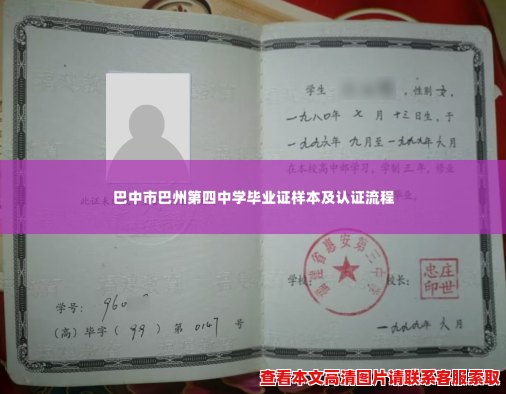 学生 ，性别 女，
一九八〇年 七 月 十三日生，于
一九九六年 九月至一九九九年 六月
在本校高中部学习，学制三年，修业
巴中市巴州第四中学毕业证样本及认证流程
此证未
福建省惠安第三中学
学校： 校长：
庄世忠印
学号： 960
（高）毕字（ 99 ）第 0147 号
一九九九年 六 月
查看本文高清图片请联系客服索取